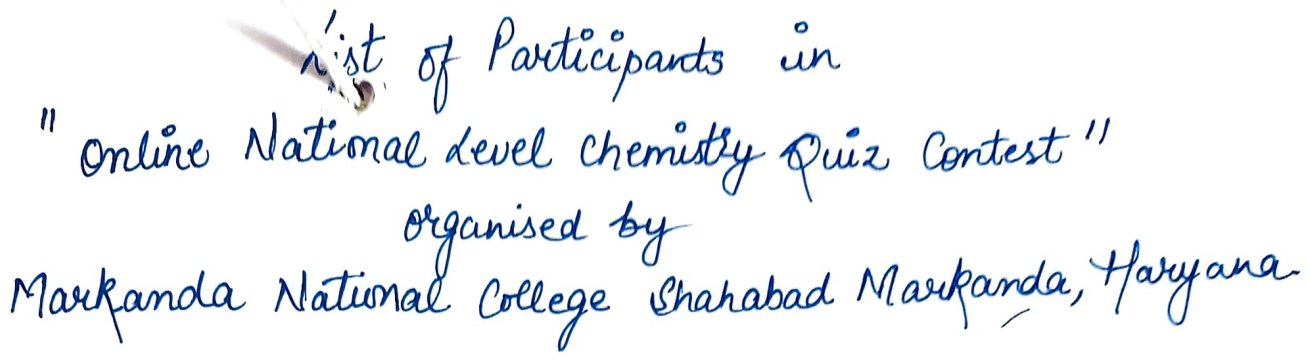 List of Participants in
"Online National Level Chemistry Quiz Contest"
organised by
Markanda National College Shahabad Markanda, Haryana